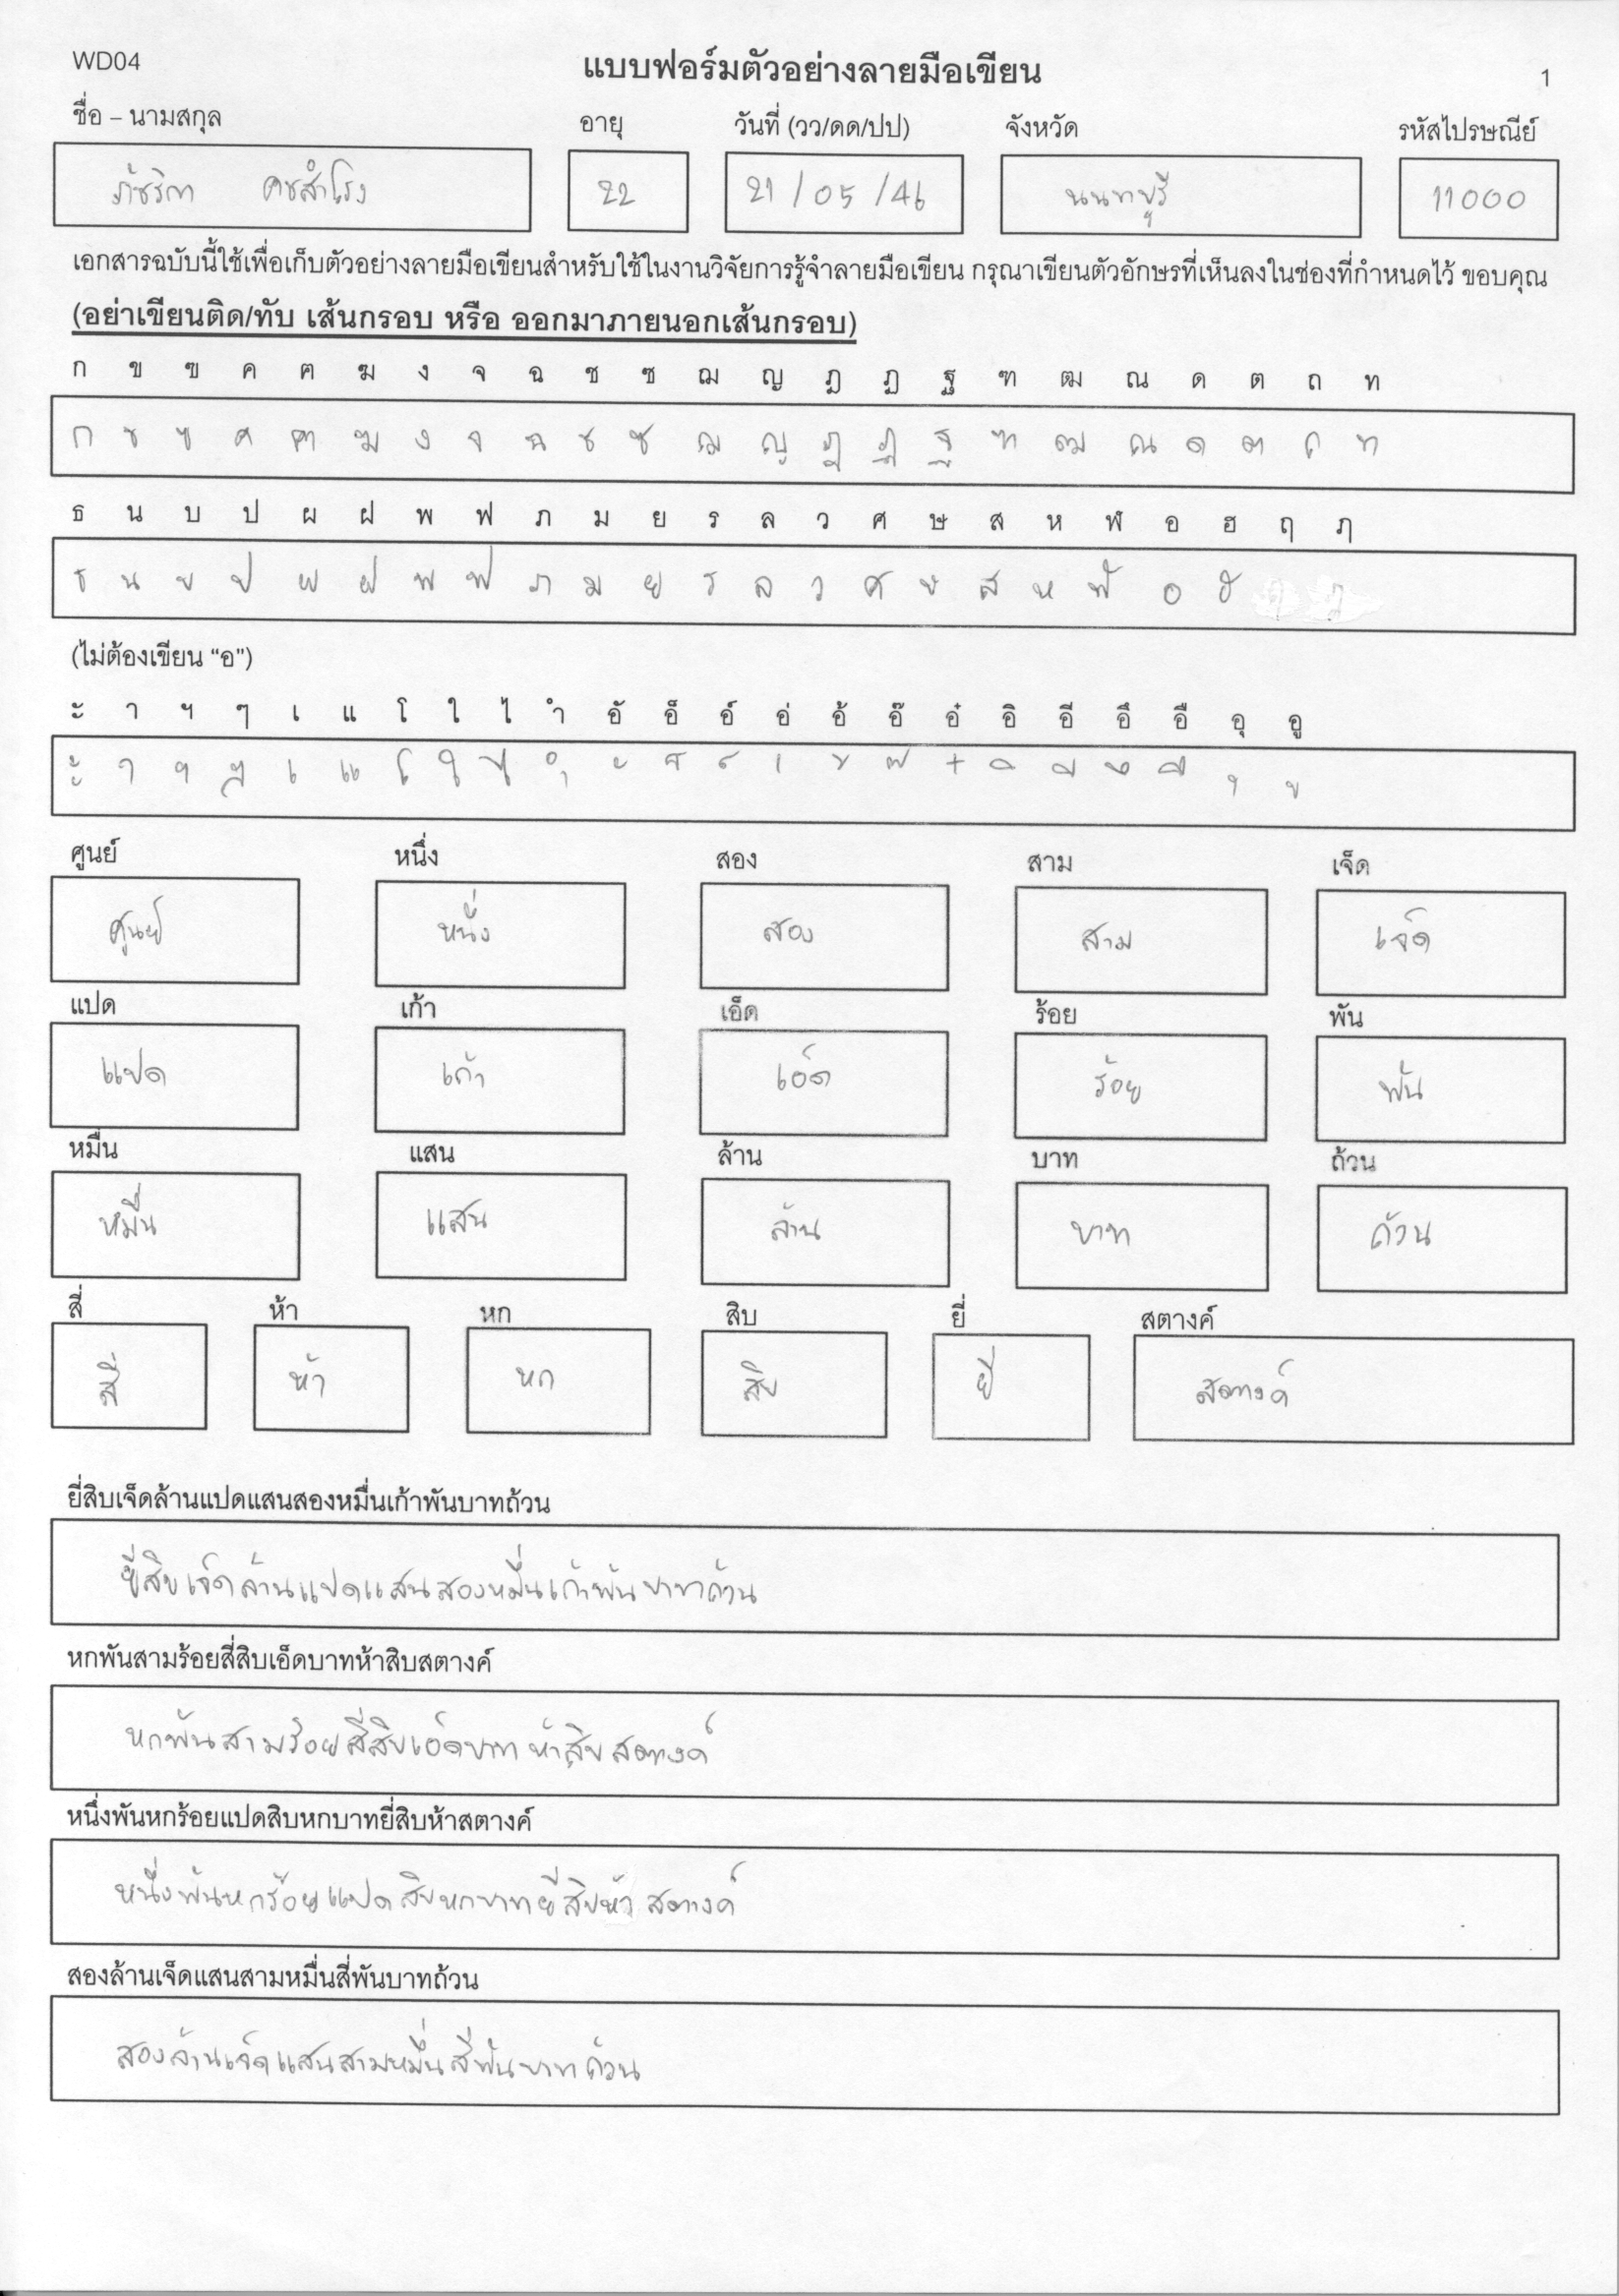 WD04
แบบฟอร์มตัวอย่างลายมือเขียน
1
ชื่อ – นามสกุล อายุ วันที่ (วว/ดด/ปป) จังหวัด รหัสไปรษณีย์
คชสำโรง 22 21/05/46 นนทบุรี 11000
เอกสารฉบับนี้ใช้เพื่อเก็บตัวอย่างลายมือเขียนสำหรับใช้ในงานวิจัยการรู้จำลายมือเขียน กรุณาเขียนตัวอักษรที่เห็นลงในช่องที่กำหนดไว้ ขอบคุณ
(อย่าเขียนติด/ทับ เส้นกรอบ หรือ ออกมาภายนอกเส้นกรอบ)
ก ข ฃ ค ฅ ฆ ง จ ฉ ช ซ ฌ ญ ฎ ฏ ฐ ฑ ฒ ณ ด ต ถ ท
ก ข ฃ ค ฅ ฆ ง จ ฉ ช ซ ฌ ญ ฎ ฏ ฐ ฑ ฒ ณ ด ต ถ ท
ธ น บ ป ผ ฝ พ ฟ ภ ม ย ร ล ว ศ ษ ส ห ฬ อ ฮ ฤ ฦ
ธ น บ ป ผ ฝ พ ฟ ภ ม ย ร ล ว ศ ษ ส ห ฬ อ ฮ ฤ ฦ
(ไม่ต้องเขียน “อ”)
ะ า ฯ ๆ เ แ โ ใ ไ ำ อั อ็ อ์ อ่ อ้ อ๊ อ๋ อิ อี อึ อื อุ อู
ะ า ฯ ๆ เ แ โ ใ ไ ำ ั ็ ์ ่ ้ ๊ ๋ ิ ี ึ ื ุ ู
ศูนย์ หนึ่ง สอง สาม เจ็ด
ศูนย์ หนึ่ง สอง สาม เจ็ด
แปด เก้า เอ็ด ร้อย พัน
แปด เก้า เอ็ด ร้อย พัน
หมื่น แสน ล้าน บาท ถ้วน
หมื่น แสน ล้าน บาท ถ้วน
สี่ ห้า หก สิบ ยี่ สตางค์
สี่ ห้า หก สิบ ยี่ สตางค์
ยี่สิบเจ็ดล้านแปดแสนสองหมื่นเก้าพันบาทถ้วน
ยี่สิบเจ็ดล้านแปดแสนสองหมื่นเก้าพันบาทถ้วน
หกพันสามร้อยสี่สิบเอ็ดบาทห้าสิบสตางค์
หกพันสามร้อยสี่สิบเอ็ดบาทห้าสิบสตางค์
หนึ่งพันหกร้อยแปดสิบหกบาทยี่สิบห้าสตางค์
หนึ่งพันหกร้อยแปดสิบหกบาทยี่สิบห้าสตางค์
สองล้านเจ็ดแสนสามหมื่นสี่พันบาทถ้วน
สองล้านเจ็ดแสนสามหมื่นสี่พันบาทถ้วน